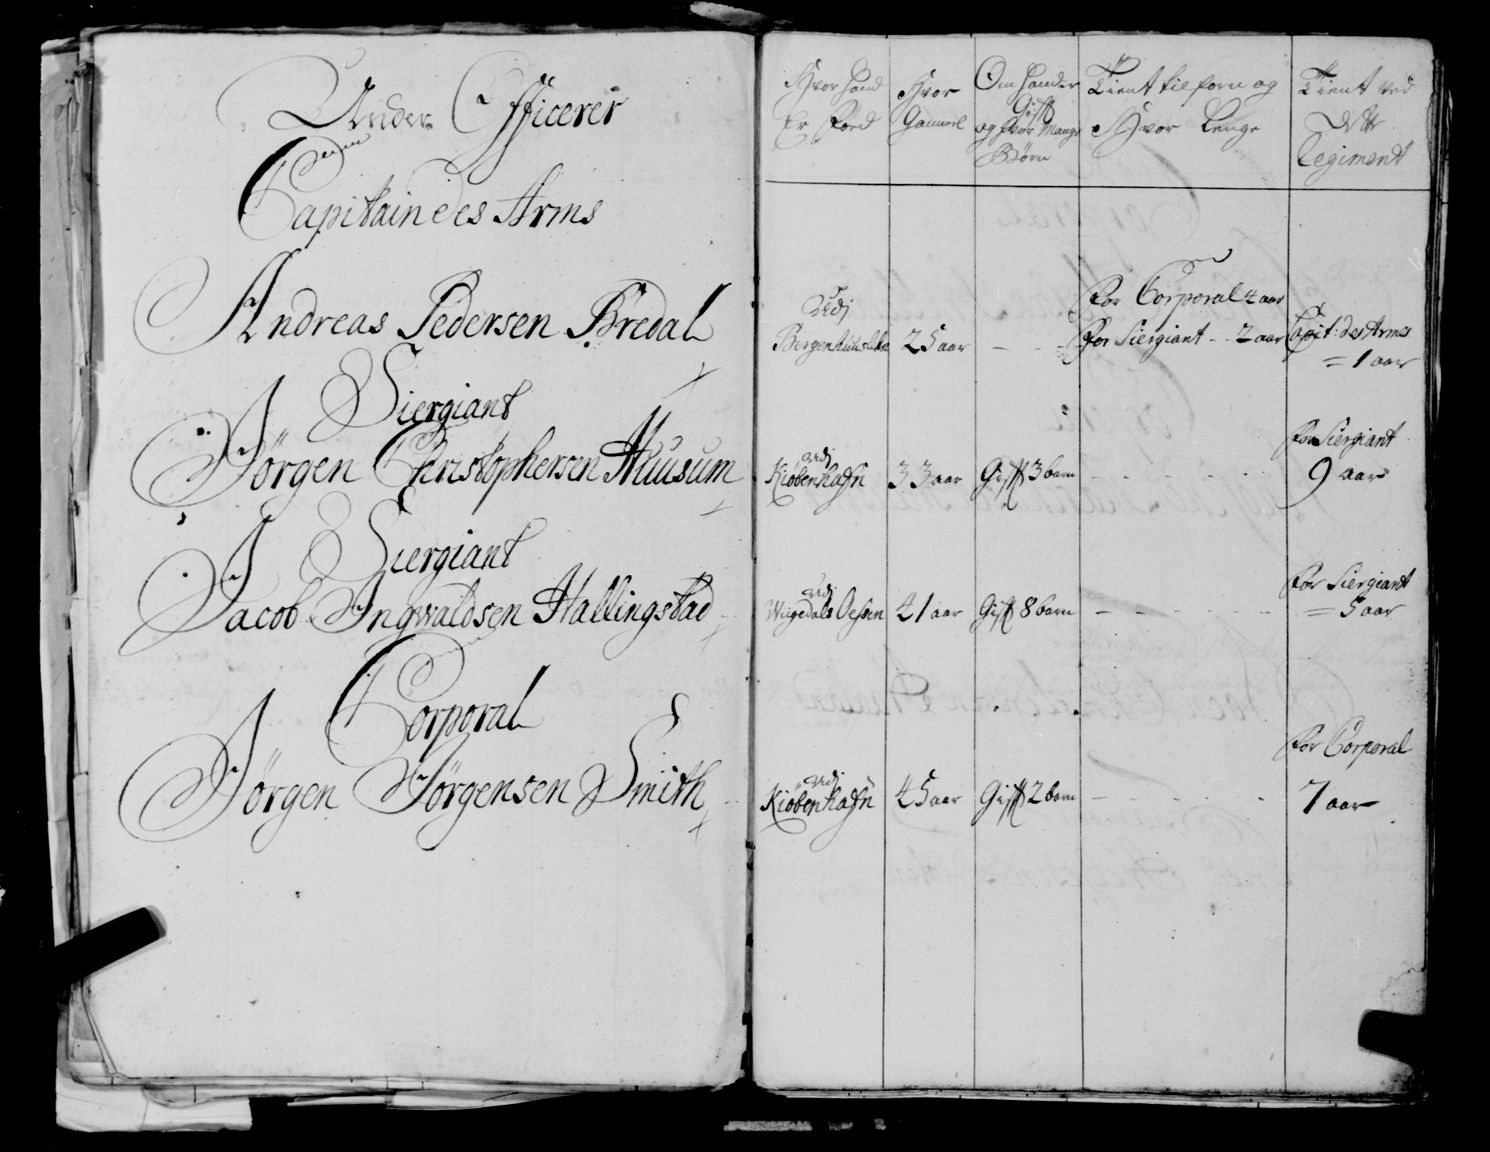 Under Officerer
Capitain des Arms
Andreas Pedersen Bredal
Siergiant
Jörgen Christophersen Huusum
Siergiant
Jacob Ingwaldsen Hallingstad
Corporal
Jörgen Jörgensen Smith
Hvor hand
Er Föed
Hvor
Gammel
Om hand er
Gift
og hvor mange
Börn
Tient tilforn og
Hvor Lenge
Tient ved
Dette
Regiment
Udj
25 aar
For Corporal 4 aar
for Siergiant - - 2 aar
Capit: des Armes
= 1 aar
Udj
Kiöbenhafn
33 aar
Gift 3 barn
for Siergiant
9 aar
Udj
41 aar
Gift 8 barn
for Siergiant
= 5 aar
Udj
Kiöbenhafn
45 aar
Gift 2 barn
for Corporal
7 aar